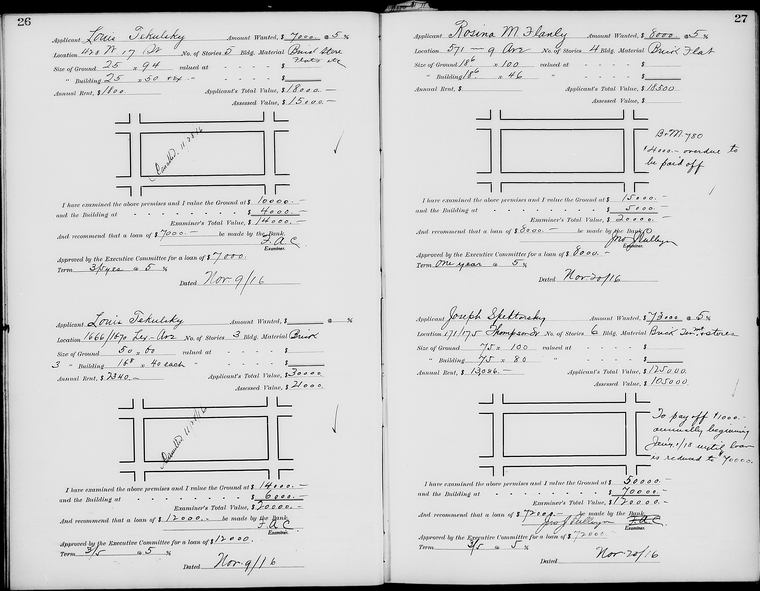 26
Applicant Louis Tekulsky Amount Wanted, $ 7000 @ 5 %
Location 420 W 17 St No. of Stories 5 Bldg. Material Brick Store
Size of Ground 25 x 94 valued at - - $
" Building 25 x 50 - - $
Annual Rent, $ 1800 Applicant's Total Value, $ 18000.-
Assessed Value, $ 15000-
Cancelled 11/28/16
I have examined the above premises and I value the Ground at $ 10000.-
and the Building at - - - - - - $ 4000.-
Examiner's Total Value, $ 14000.-
And recommend that a loan of $ 7000.- be made by the Bank.
F.A.C.
Examiner.
Approved by the Executive Committee for a loan of $ 7000.
Term 3/5 yrs @ 5 %
Dated Nov. 9/16
Applicant Louis Tekulsky Amount Wanted, $ @ %
Location 1666/1670 Lex. Ave No. of Stories 3 Bldg. Material Brick
Size of Ground 50 x 60 valued at - - $
3 " Building 16⁸ x 40 each - - $
Annual Rent, $ 2340.- Applicant's Total Value, $ 30000
Assessed Value, $ 21000.
Cancelled 11/28/16
I have examined the above premises and I value the Ground at $ 14000.-
and the Building at - - - - - - $ 6000.-
Examiner's Total Value, $ 20000.-
And recommend that a loan of $ 12000.- be made by the Bank.
F.A.C.
Examiner.
Approved by the Executive Committee for a loan of $ 12000.
Term 3/5 @ 5 %
Dated Nov. 9/16
27
Applicant Rosina M. Flanly Amount Wanted, $ 8000 @ 5 %
Location 571-9 Ave No. of Stories 4 Bldg. Material Brick Flat
Size of Ground 18⁶ x 100 valued at - - $
" Building 18⁶ x 46 - - $
Annual Rent, $ Applicant's Total Value, $ 18500
Assessed Value, $
B+M. 780
$4000.- overdue to
be paid off
I have examined the above premises and I value the Ground at $ 15000.-
and the Building at - - - - - - $ 5000.-
Examiner's Total Value, $ 20000.-
And recommend that a loan of $ 8000.- be made by the Bank.
Examiner.
Approved by the Executive Committee for a loan of $ 8000.-
Term One year @ 5 %
Dated Nov 20/16
Applicant Joseph Spektorsky Amount Wanted, $ 73000 @ 5 %
Location 171/175 Thompson St No. of Stories 6 Bldg. Material Brick stores
Size of Ground 75 x 100 valued at - - $
" Building 75 x 80 - - $
Annual Rent, $ 13,086.- Applicant's Total Value, $ 125000
Assessed Value, $ 105000.
To pay off $1000.-
annually beginning
Jan'y. 1/18 until loan
is reduced to $70000.
I have examined the above premises and I value the Ground at $ 50000.-
and the Building at - - - - - - $ 70000.-
Examiner's Total Value, $ 120000.-
And recommend that a loan of $ 72000.- be made by the Bank.
F.A.C.
Examiner.
Approved by the Executive Committee for a loan of $ 72000.
Term 3/5 @ 5 %
Dated Nov 20/16